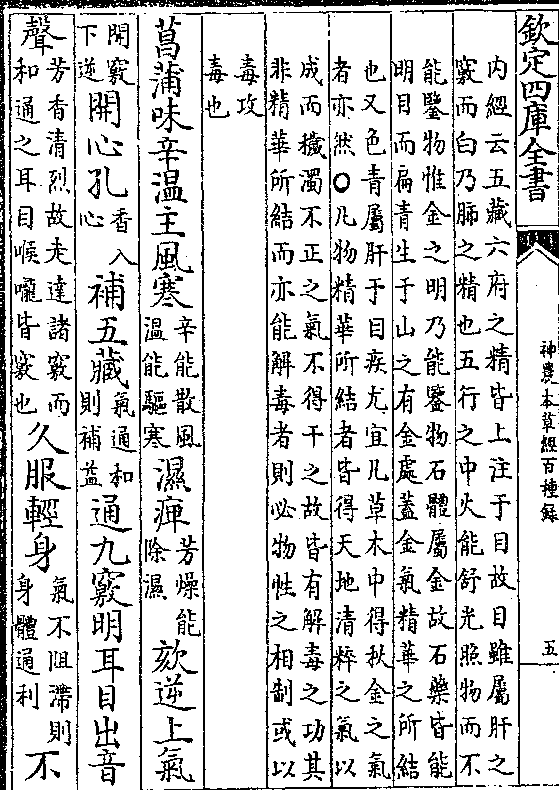 欽定四庫全書
神農本草經百種錄
五
內經云五藏六府之精皆上注于目故目雖屬肝之
竅而白乃肺之精也五行之中火能舒光照物而不
能鑒物惟金之明乃能鑒物石體屬金故石藥皆能
明目而扁青生于山之有金處蓋金氣精華之所結
也又色青屬肝于目疾尤宜凡草木中得秋金之氣
者亦然〇凡物精華所結者皆得天地清粹之氣以
成而穢濁不正之氣不得干之故皆有解毒之功其
非精華所結而亦能解毒者則必物性之相制或以
毒攻
毒也
菖蒲味辛溫主風寒
辛能散風
溫能驅寒
濕痺
芳燥能
除濕
欬逆上氣
開竅
下逆
開心孔
香入
心
補五藏
氣通和
則補益
通九竅明耳目出音
聲
芳香清烈故走達諸竅而
和通之耳目喉嚨皆竅也
久服輕身
氣不阻滯則
身體通利
不